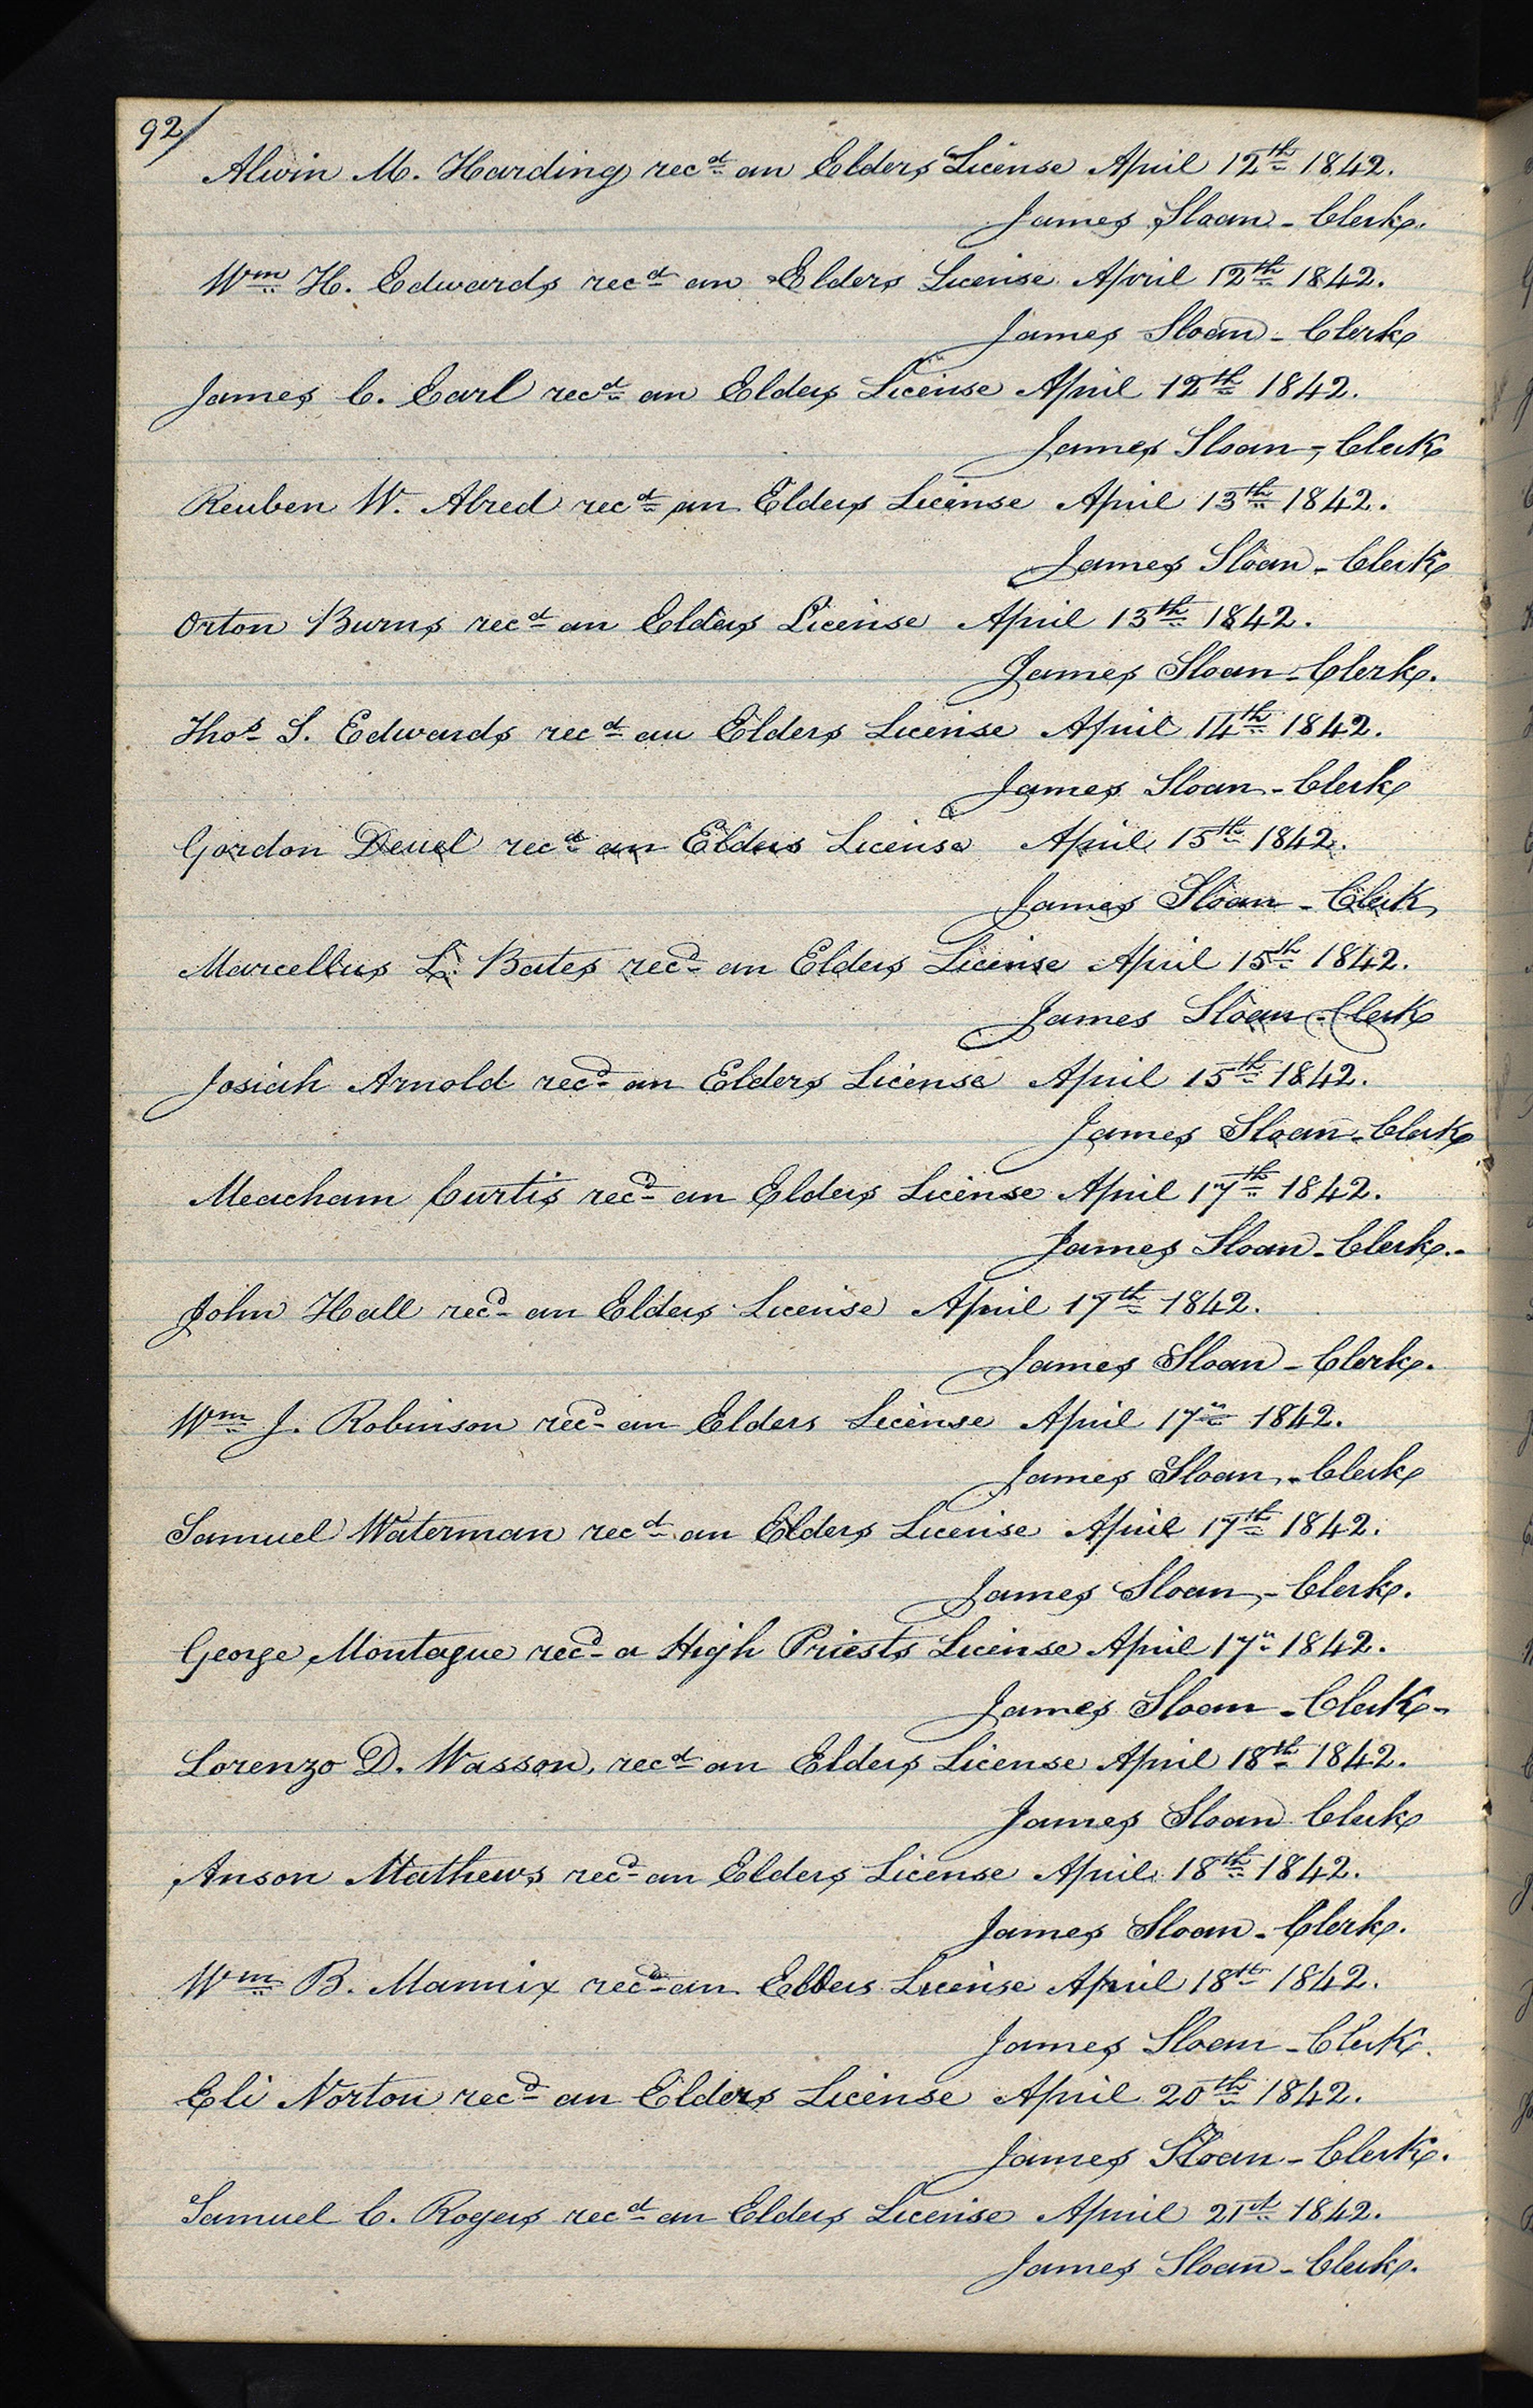 92/
Alvin M. Harding recd an Elders License April 12th 1842.
James Sloan - Clerk.
Wm H. Edwards recd an Elders License April 12th 1842.
James Sloan - Clerk
James C. Earl recd an Elders License April 12th 1842.
James Sloan - Clerk
Reuben W. Alred recd an Elders License April 13th 1842.
James Sloan - Clerk
Orton Burns recd an Elders License April 13th 1842.
James Sloan - Clerk.
Thos S. Edwards recd an Elders License April 14th 1842.
James Sloan - Clerk
Gordon Deuel recd an Elders License April 15th 1842.
James Sloan - Clerk
Marcellus L. Bates recd an Elders License April 15th 1842.
James Sloan - Clerk
Josiah Arnold recd an Elders License April 15th 1842.
James Sloan - Clerk
Meacham Curtis recd an Elders License April 17th 1842.
James Sloan - Clerk.
John Hall recd an Elders License April 17th 1842.
James Sloan - Clerk.
Wm J. Robinson recd an Elders License April 17th 1842.
James Sloan - Clerk
Samuel Waterman recd an Elders License April 17th 1842.
James Sloan - Clerk.
George Montague recd a High Priests License April 17" 1842.
James Sloan - Clerk -
Lorenzo D. Wasson, recd an Elders License April 18th 1842.
James Sloan Clerk
Anson Mathews recd an Elders License April 18th 1842.
James Sloan - Clerk.
Wm B. Mannix recd an Elders License April 18th 1842.
James Sloan - Clerk.
Eli Norton recd an Elders License April 20th 1842.
James Sloan - Clerk.
Samuel C. Rogers recd an Elders License April 21st 1842.
James Sloan - Clerk.